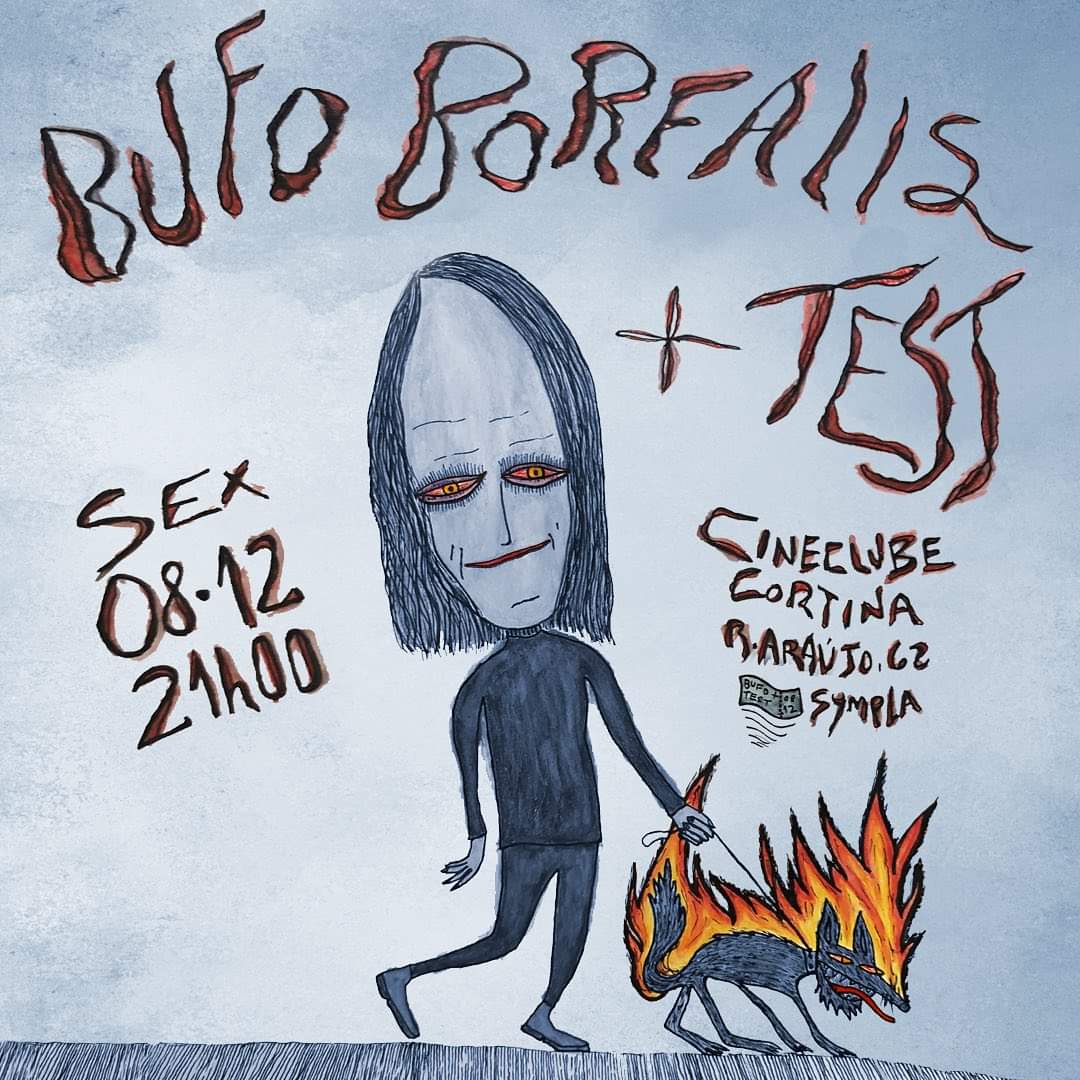 BUFO BOREALIS
+ TEST
SEX
08.12
21h00
CINECLUBE
CORTINA
R.ARAÚJO.62
BUFO +
TEST
08
12
SYMPLA